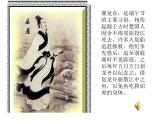 赛龙舟，是端午节
的主要习俗。相传
起源于古时楚国人
因舍不得贤臣屈原
死去，许多人划船
追赶拯救。他们争
先恐后，追至洞庭
湖时不见踪迹，之
后每年五月五日划
龙舟以纪念之。借
划龙舟驱散江中之
鱼，以免鱼吃掉屈
原的身体。
屈原